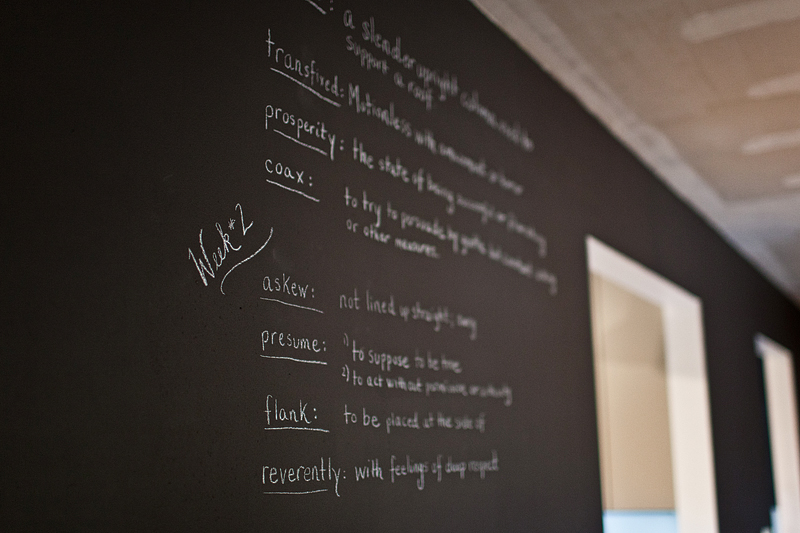 : a slender upright column used to
support a roof
transfixed: Motionless with amazement or terror
prosperity: the state of being successful or flourishing
coax: to try to persuade by gentle but constant urging
or other measures.
Week #2
askew: not lined up straight; awry
presume: 1) to suppose to be true
2) to act without permission or authority
flank: to be placed at the side of
reverently: with feelings of deep respect